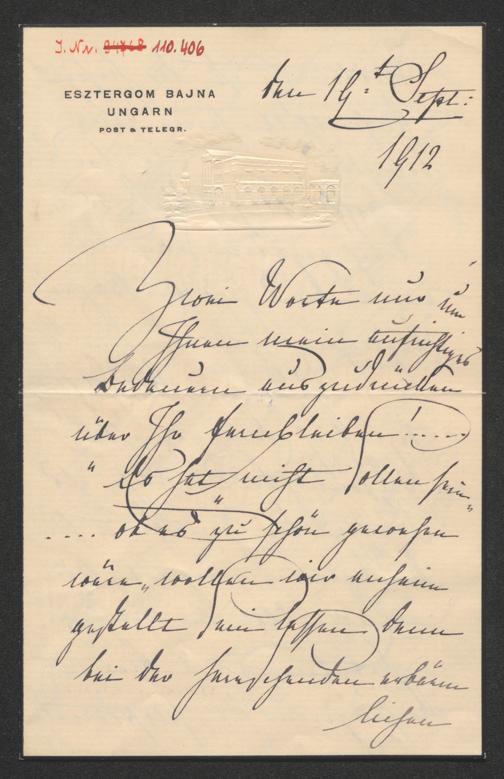 J. Nr. 110.406
ESZTERGOM BAJNA
UNGARN
POST & TELEGR.
den 19.t Sept:
1912
Zwei Worte nur um
Ihnen mein aufrichtiges
Bedauern auszudrücken
über Ihr Fernbleiben!.....
"Es hat nicht sollen sein"
.... ob es "zu schön gewesen
wäre" wollen wir anheim
gestellt sein lassen denn
bei der herrschenden erbärm
lichen